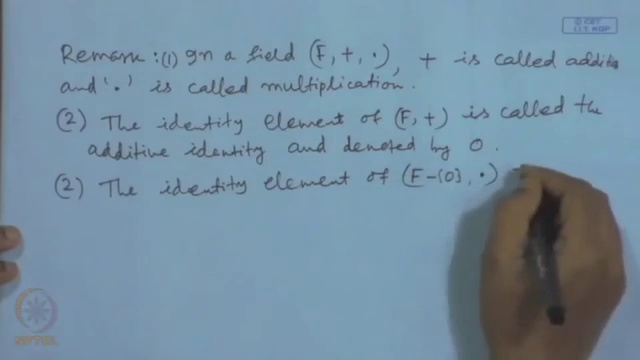 Remark : (1) In a field (F, +, ·), + is called additio
and '·' is called multiplication.
(2) The identity element of (F, +) is called the
additive identity and denoted by 0.
(2) The identity element of (F-{0}, ·)
© CET
I.I.T. KGP
NPTEL